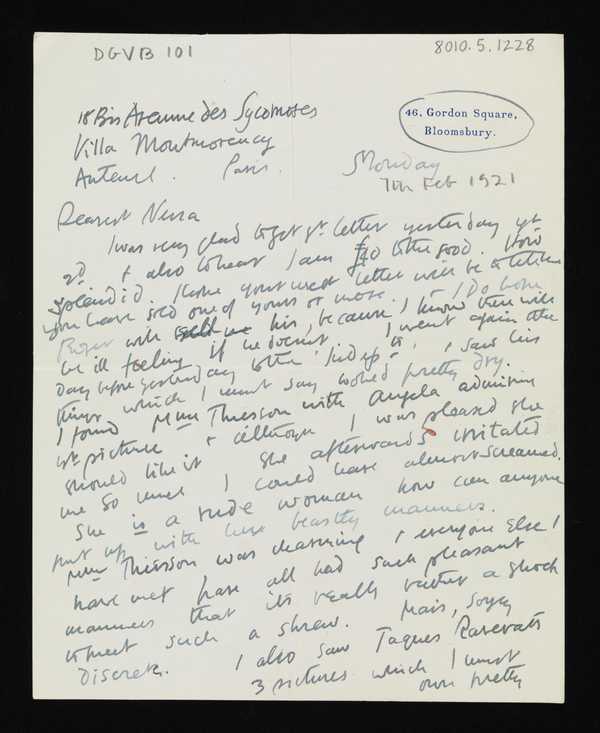 DGVB 101
8010.5.1228
18 Bis Avenue des Sycomores
46, Gordon Square,
Bloomsbury.
Villa Montmorency
Auteuil. Paris.
Monday
7th Feb 1921
Dearest Nessa
I was very glad to get yr letter yesterday yr
2d & also to hear I am £40 to the good. How
splendid. I hope your next letter will be to tell me
you have sold one of yours or more. I Do hope
Roger will sell his, because I know there will
be ill feeling if he doesn't. I went again the
Day before yesterday to the Indep ts, & saw his
things which I must say looked pretty dry.
I found Mme Thiesson with Angela admiring
yr picture & although I was pleased she
should like it she afterwards irritated
me so much I could have almost screamed.
She is a rude woman how can anyone
put up with her beastly manners.
Mme Thiesson was charming & everyone Else I
have met have all had such pleasant
manners that its really rather a shock
to meet such a shrew. Mais, soyez
Discrete. I also saw Jaques Raverats
3 pictures which I must
own pretty